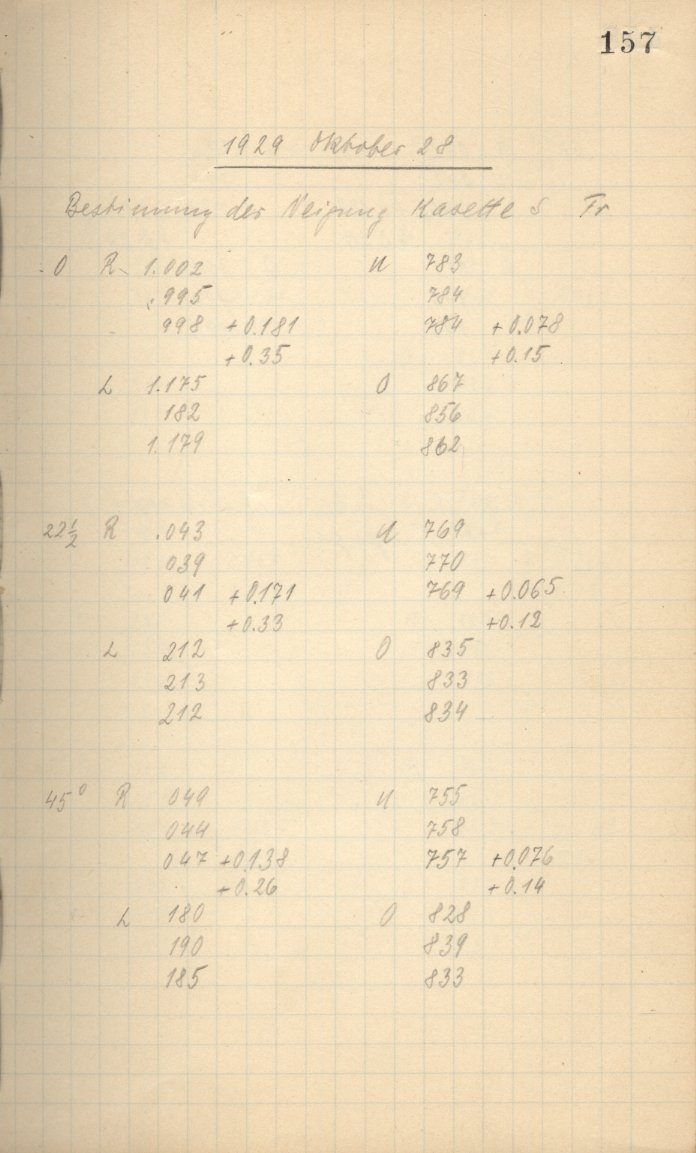 157
1929 Oktober 28
Bestimmung der Neigung Kasette S Tr
0 R 1.002 U 783
.995 784
998 +0.181 784 +0.078
+0.35 +0.15
L 1.175 O 867
182 856
1.179 862
22½ R .043 U 769
039 770
041 +0.171 769 +0.065
+0.33 +0.12
L 212 O 835
213 833
212 834
45° R 049 U 755
044 758
047 +0.138 757 +0.076
+0.26 +0.14
L 180 O 828
190 839
185 833